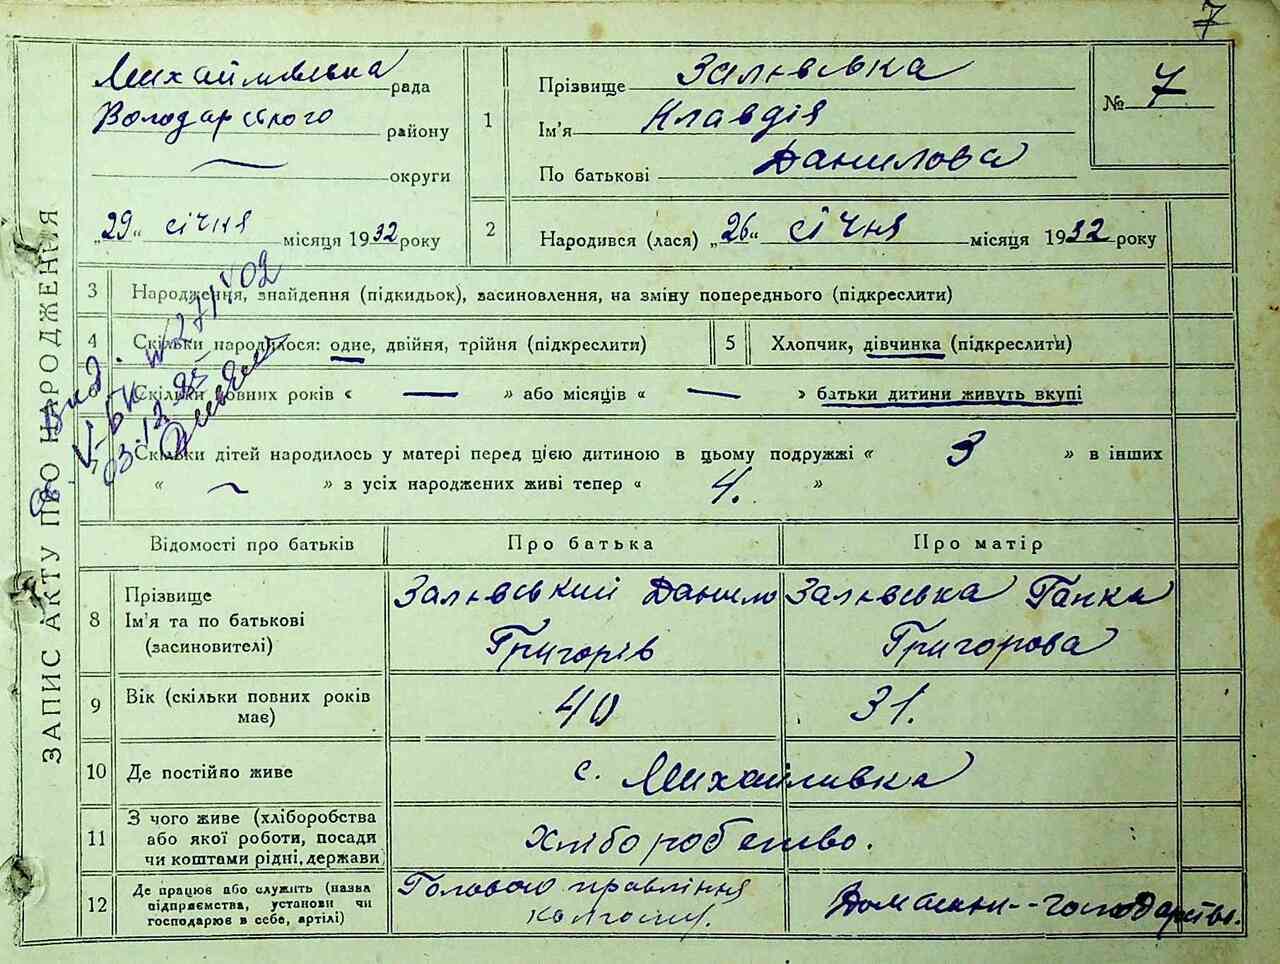 7
ЗАПИС АКТУ ПРО НАРОДЖЕННЯ
Михайлівська рада
Володарського району
округи
„29“ січня місяця 1932 року
1
Прізвище Залєвська
Ім'я Клавдія
По батькові Данилова
№ 7
2
Народився (лася) „26“ січня місяця 1932 року
3 Народження, знайдення (підкидьок), васиновлення, на зміну попереднього (підкреслити)
4 Скільки народилося: одне, двійня, трійня (підкреслити)
5 Хлопчик, дівчинка (підкреслити)
Скільки повних років « — » або місяців « — » батьки дитини живуть вкупі
Скільки дітей народилось у матері перед цією дитиною в цьому подружжі « 3 » в інших
« ~ » з усіх народжених живі тепер « 4. »
Відомості про батьків Про батька Про матір
8 Прізвище
Ім'я та по батькові
(засиновителі)
Залєвський Данило
Григорів
Залєвська Ганка
Григорова
9 Вік (скільки повних років
має)
40 31.
10 Де постійно живе с. Михайлівка
11 З чого живе (хліборобства
або якої роботи, посади
чи коштами рідні, держави
Хліборобство.
12 Де працює або служить (назва
підприємства, установи чи
господарює в себе, артілі)
Головою правління
колгоспу.
Домашнє-господарство.